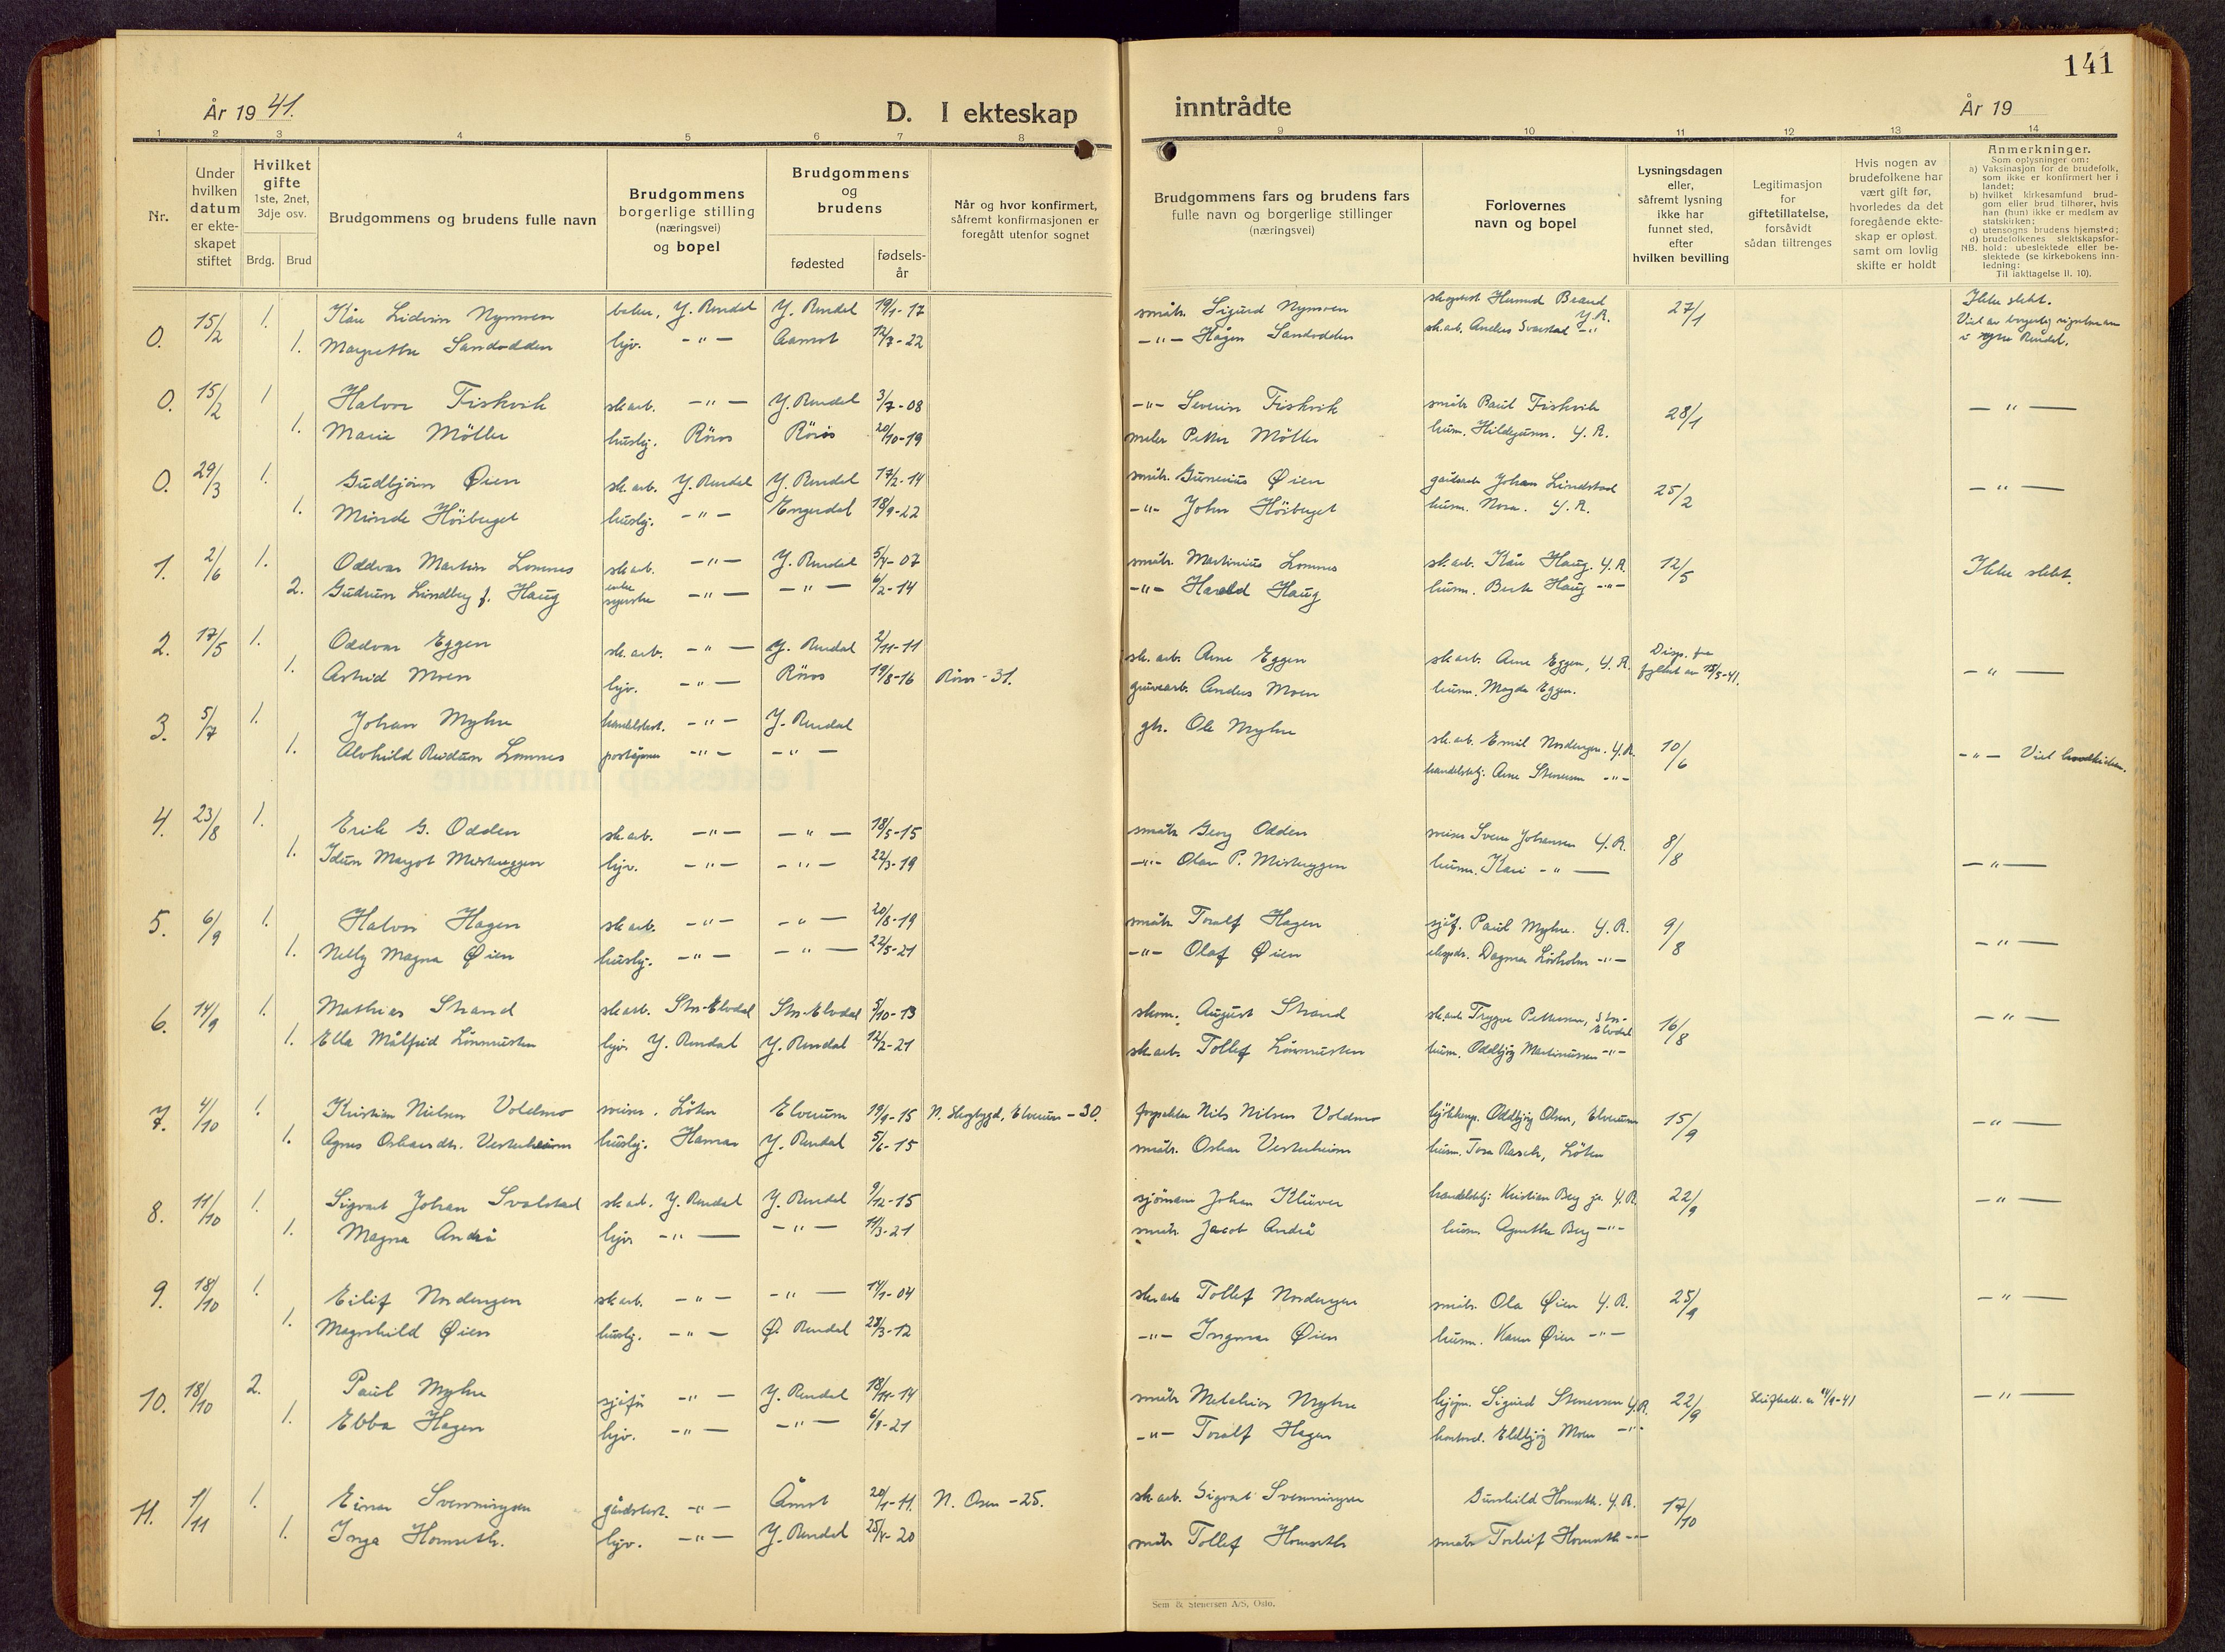 141
År 1941.
D. I ekteskap inntrådte
År 19
1 2 3 4 5 6 7 8 9 10 11 12 13 14
Nr.
Under hvilken datum er ekteskapet stiftet
Hvilket gifte 1ste, 2net, 3dje osv.
Brdg. Brud
Brudgommens og brudens fulle navn
Brudgommens borgerlige stilling (næringsvei) og bopel
Brudgommens og brudens
fødested
fødselsår
Når og hvor konfirmert, såfremt konfirmasjonen er foregått utenfor sognet
Brudgommens fars og brudens fars fulle navn og borgerlige stillinger (næringsvei)
Forlovernes navn og bopel
Lysningsdagen eller, såfremt lysning ikke har funnet sted, efter hvilken bevilling
Legitimasjon for giftetillatelse, forsåvidt sådan tiltrenges
Hvis nogen av brudefolkene har vært gift før, hvorledes da det foregående ekteskap er opløst samt om lovlig skifte er holdt
Anmerkninger.
Som oplysninger om:
a) Vaksinasjon for de brudefolk, som ikke er konfirmert her i landet;
b) hvilket kirkesamfund brudgom eller brud tilhører, hvis han (hun) ikke er medlem av statskirken;
c) utensogns brudens hjemsted;
d) brudefolkenes slektskapsforhold: ubeslektede eller beslektede (se kirkebokens innledning;
NB. Til iakttagelse II. 10).
0. 15/2 1. Kåre Nymoen Y. Rendal Y. Rendal 19/1-17 småbr. Sigurd Nymoen 27/1 Ikke slekt.
1. Margrethe Sandodden hjv. -"- Aamot 12/7-22 -"- Hågen Sandodden sk.arb. Anders -"-
0. 15/2 1 Halvor Fiskvik sk.arb. -"- Y. Rendal 3/7-08 -"- Severin Fiskvik småbr. Paul Fiskvik 28/1 -"-
1. Marie Möller huslig. Röros Röros 20/10-19 maler Petter Möller husm. Hildegunn. Y. R.
0. 29/3 1. Gudbjörn Øien sk.arb. Y. Rendal Y. Rendal 17/2-14 småbr. Gunerius Øien Johan Lindstad 25/2 -"-
1. Minda Höiberget huslig. -"- Engerdal 18/9-22 -"- John Höiberget husm. Nora. Y. R.
1. 2/6 1. Oddvar Martin Lomnes sk.arb. -"- Y. Rendal 5/4-07 småbr. Martinius Lomnes sk.arb. Kåre Haug. Y. R. 12/5 Ikke slekt.
2. Gudrun Lindberg f. Haug enke -"- -"- 6/2-14 -"- Harald Haug husm. Haug -"-
2. 17/5 1. Oddvar Eggen sk.arb. -"- Y. Rendal 2/11-11 sk.arb. Arne Eggen sk.arb. Arne Eggen, Y. R. Disp. fra -"-
1. Astrid Moen hjv. -"- Röros 19/8-16 Röros-31. gruvearb. Anders Moen husm. Magda Eggen.
3. 5/7 1. Johan Myhre handelsbest. -"- Y. Rendal gbr. Ole Myhre sk.arb. Emil Nordengen. Y. R. 10/6 -"-
1. Alvhild Reidun Lomnes -"- -"- Arne Stenersen -"-
4. 23/8 1. Erik G. Odden sk.arb. -"- -"- 18/5-15 småbr. Georg Odden Svein Johansen Y. R. 8/8
1. Idun Margot Misteregggen hjv. -"- -"- 22/3-19 -"- Olav P. Misteregggen husm. Kari -"- -"-
5. 6/9 1. Halvor Hagen sk.arb. -"- -"- 20/8-19 småbr. Toralf Hagen sjåf. Paul Myhre. Y. R. 9/8 -"-
1. Nelly Magna Øien huslig. -"- -"- 22/5-21 -"- Olaf Øien Dagmar -"-
6. 14/9 1. Mathias Strand sk.arb. Stor-Elvdal Stor-Elvdal 5/10-13 skom. August Strand sk.arb. Trygve Pettersen, Stor-Elvdal 16/8 -"-
1. Ella Målfrid Lönmusten hjv. Y. Rendal Y. Rendal 12/2-21 sk.arb. Tollef Lönmusten husm. Oddbjörg Martinussen -"-
7. 4/10 1. Kristian Nielsen Voldmo Löten Elverum 19/9-15 N. Skogbygd, Elverum-30. Nils Nilsen Voldmo Oddbjörg Olsen, Elverum 15/9 -"-
1. Agnes Oskarsdtr. Vesterheim huslig. Hamar Y. Rendal 5/6-15 småbr. Oskar Vesterheim husm. Tora Rasch, Löten
8. 11/10 1. Sigvart Johan Svalstad sk.arb. Y. Rendal Y. Rendal 9/12-15 sjömann Johan Klüver Kristian Berg jr. Y. R. 22/9 -"-
1. Magna Andrå hjv. -"- -"- 11/3-21 småbr. Jacob Andrå husm. Agnethe Berg -"-
9. 18/10 1. Eilif Nordengen sk.arb. -"- -"- 14/1-04 sk.arb. Tollef Nordengen småbr. Ola Øien Y. R. 25/9 -"-
1. Magnhild Øien huslig. -"- Ø. Rendal 28/3-12 -"- Ingmar Øien husm. Karen Øien -"-
10. 18/10 2. Paul Myhre sjåför -"- Y. Rendal 18/11-14 småbr. Melchior Myhre Sigurd Stenersen Y. R. 22/9 -"-
1. Ebba Hagen hjv. -"- -"- 6/8-21 -"- Toralf Hagen Eldbjörg Moen -"-
11. 1/11 1. Einar Svenningsen gårdsbest. -"- Åmot 20/1-11. N. Osen-25. sk.arb. Sigvart Svenningsen Gunhild Hornseth. Y. R. 17/10
1. Inga Hornseth. hjv. -"- Y. Rendal 25/4-20 småbr. Tollef Hornseth småbr. Torleif Hornseth -"-
Sem & Stenersen A/S, Oslo.